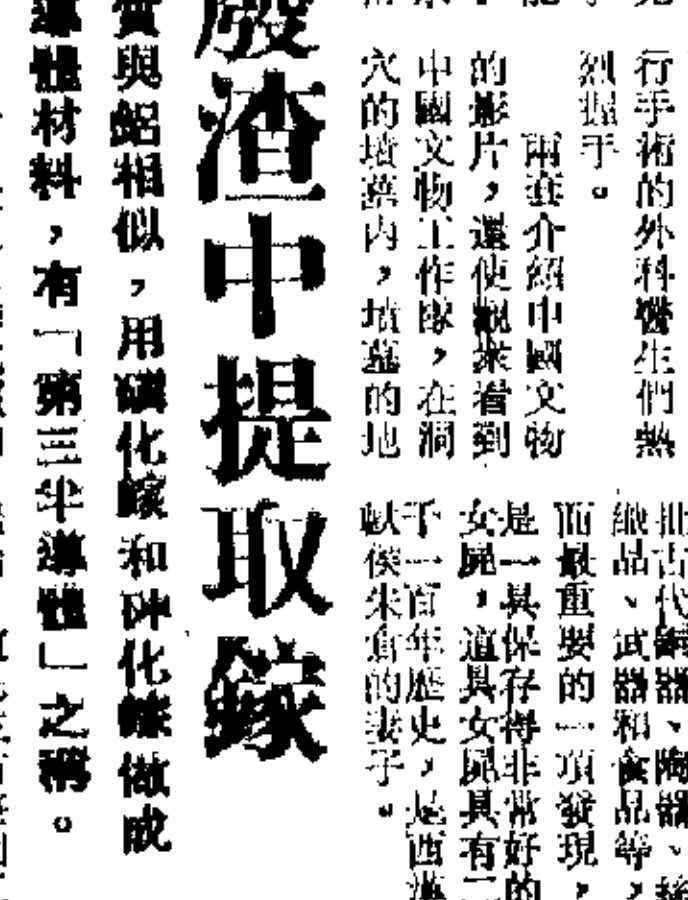 行手術的外科醫生們熱
烈握手。
兩套介紹中國文物
的影片，還使觀衆看到
中國文物工作隊，在洞
穴的墳墓內，墳墓的地
批古代銅器、陶器、絲
織品、武器和食品等，
而最重要的一項發現，
是一具保存得非常好的
女屍，這具女屍具有二
千一百年歷史，是西漢
軑侯朱倉的妻子。
廢渣中提取鎵
質與鋁相似，用磷化鎵和砷化鎵做成
導體材料，有「第三半導體」之稱。